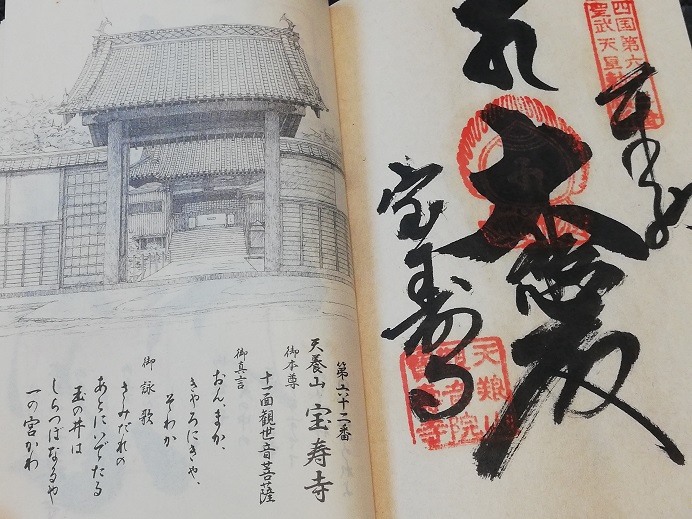 四国第六
聖武天皇勅
大悲殿
宝寿寺
天養山
観音院
宝寿寺
第六十二番
天養山 宝寿寺
御本尊
十一面観世音菩薩
御真言
おんまか、
きゃろにきゃ、
そわか
御詠歌
さみだれの
あとにいでたる
玉の井は
しらつぼなるや
一の宮かわ